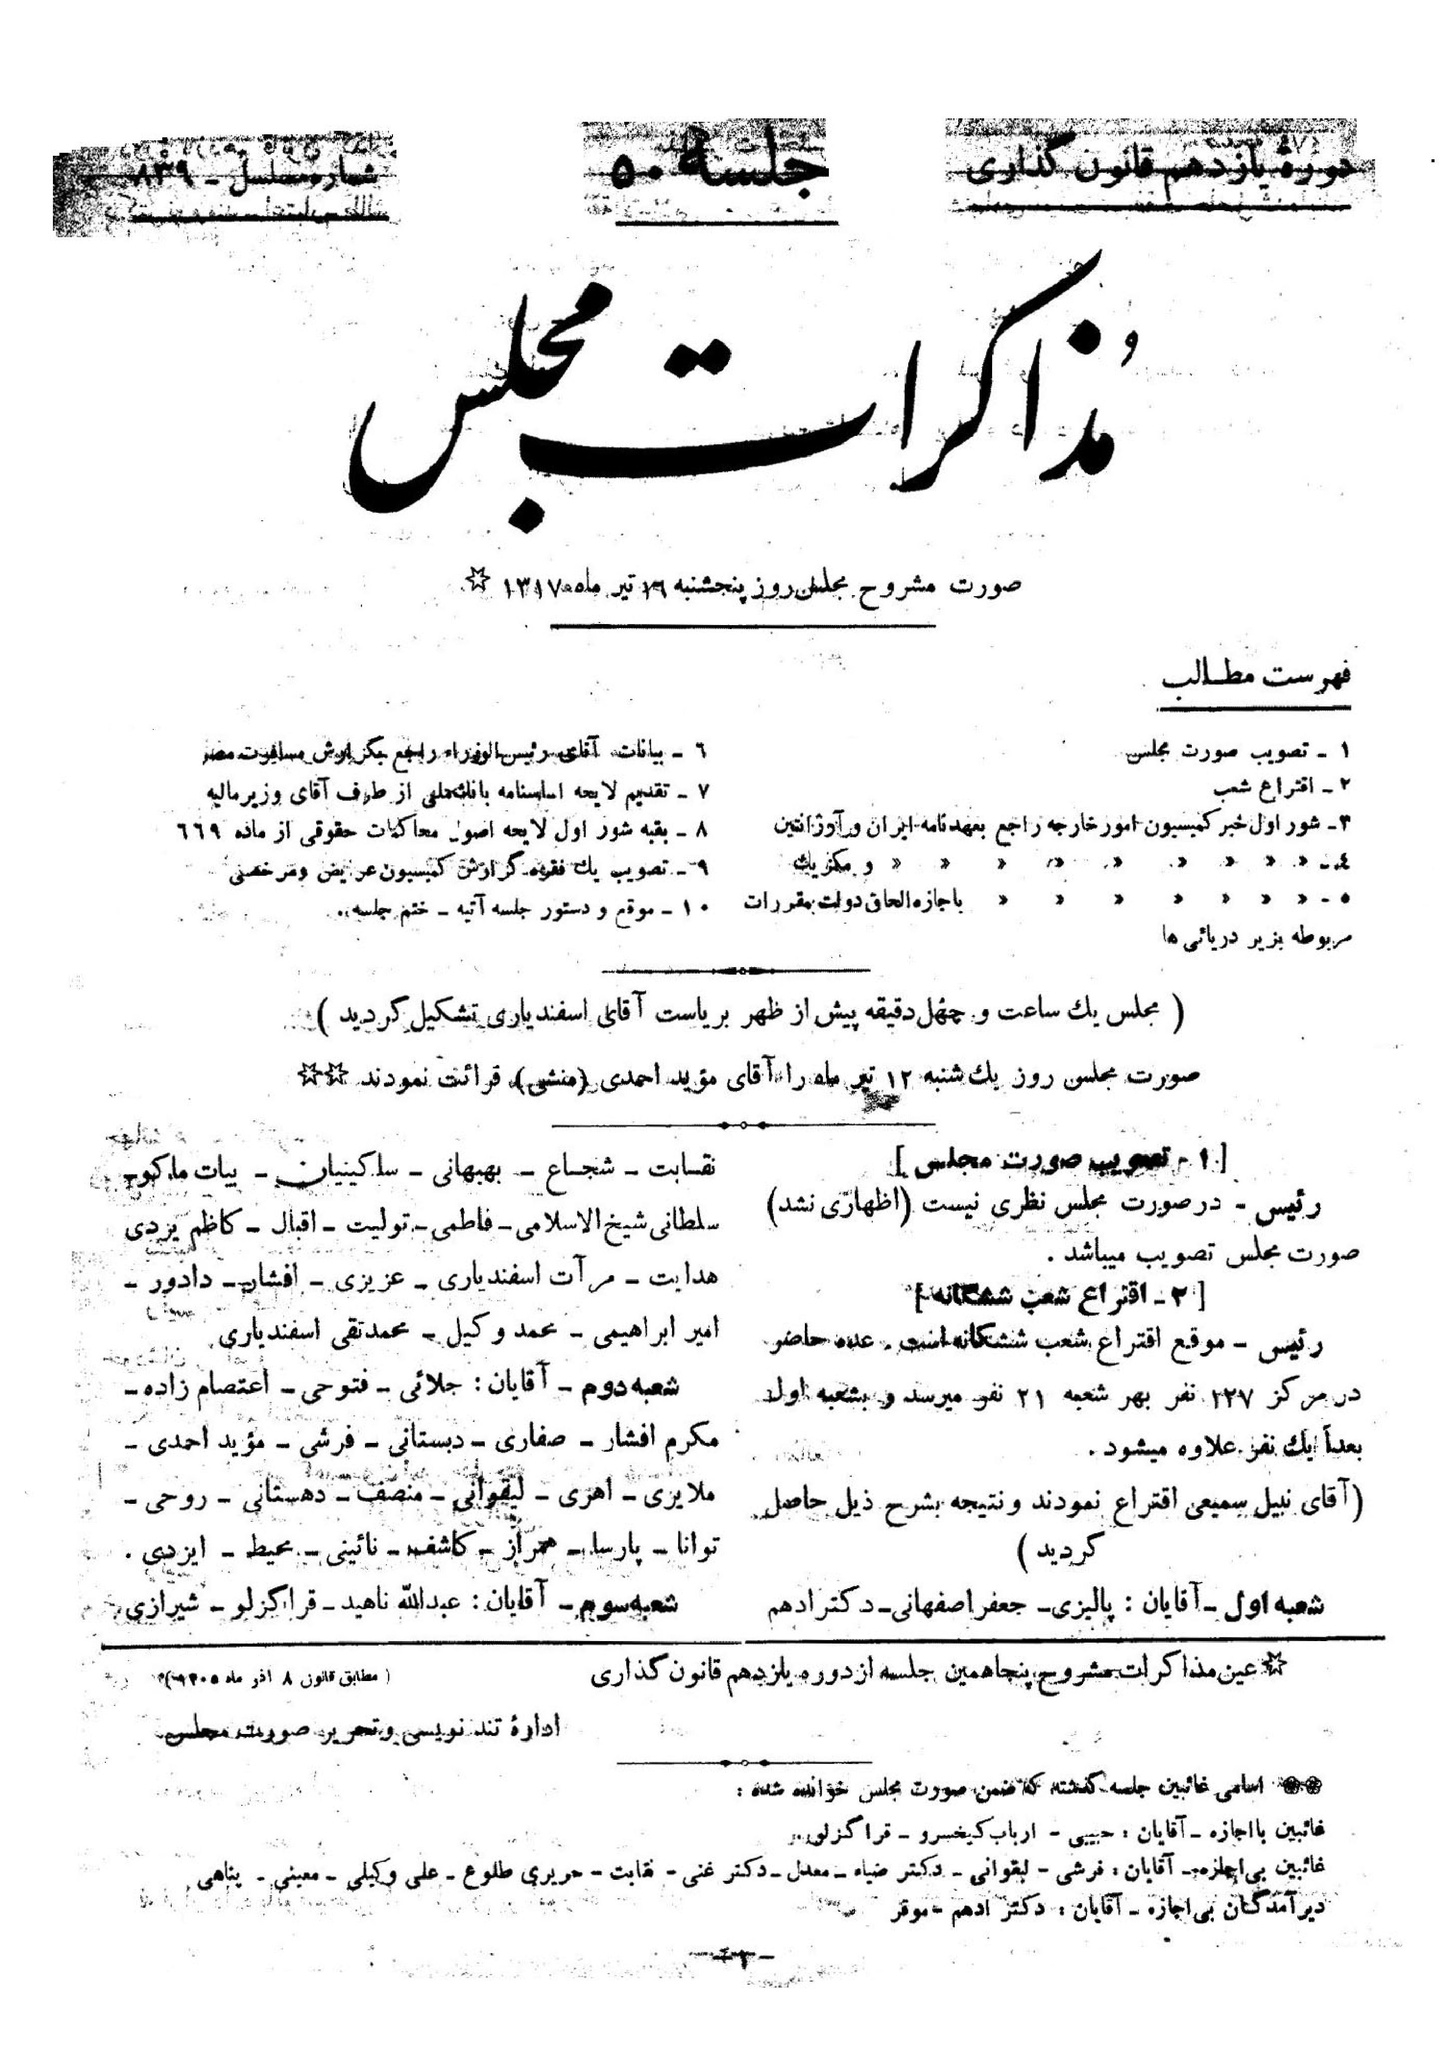 دورهٔ یازدهم قانون گذاری
جلسه ۵۰
شماره مسلسل - ۸۳۹
مُذاکرات مجلس
صورت مشروح مجلس روز پنجشنبه ۱۶ تیر ماه ۱۳۱۷ ☆
فهرست مطالب
۱ - تصویب صورت مجلس
۲ - اقتراع شعب
۳ - شور اول خبر کمیسیون امور خارجه راجع بعهدنامه ایران و آرژانتین
۴ - « « « « « « « « « و مکزیك
۵ - « « « « « « « باجازه الحاق دولت بمقررات
مربوطه بزیر دریائی ها
۶ - بیانات آقای رئیس الوزراء راجع بگزارش مسافرت مصر
۷ - تقدیم لایحه اساسنامه بانك ملی از طرف آقای وزیر مالیه
۸ - بقیه شور اول لایحه اصول محاکمات حقوقی از ماده ۶۶۹
۹ - تصویب یك فقره گزارش کمیسیون عرایض و مرخصی
۱۰ - موقع و دستور جلسه آتیه - ختم جلسه.
( مجلس یك ساعت و چهل دقیقه پیش از ظهر بریاست آقای اسفندیاری تشکیل گردید )
صورت مجلس روز یك شنبه ۱۲ تیر ماه را آقای مؤید احمدی (منشی) قرائت نمودند ☆☆
[ ۱ - تصویب صورت مجلس ]
رئیس - در صورت مجلس نظری نیست (اظهاری نشد)
صورت مجلس تصویب میباشد .
[ ۲ - اقتراع شعب ششگانه ]
رئیس - موقع اقتراع شعب ششگانه است . عده حاضر
در مرکز ۱۲۷ نفر بهر شعبه ۲۱ نفر میرسد و بشعبه اول
بعداً یك نفر علاوه میشود .
(آقای نبیل سمیعی اقتراع نمودند و نتیجه بشرح ذیل حاصل
گردید )
شعبه اول - آقایان : پالیزی - جعفر اصفهانی - دکتر ادهم
نقابت - شجاع - بهبهانی - ساکینیان - بیات ماکو -
سلطانی شیخ الاسلامی - فاطمی - تولیت - اقبال - کاظم یزدی
هدایت - مرآت اسفندیاری - عزیزی - افشار - دادور -
امیر ابراهیمی - محمد وکیل - محمدتقی اسفندیاری
شعبه دوم - آقایان : جلائی - فتوحی - اعتصام زاده -
مکرم افشار - صفاری - دبستانی - فرشی - مؤید احمدی -
ملایری - اهری - لیقوانی - منصف - دهستانی - روحی -
توانا - پارسا - همراز - کاشف - نائینی - محیط - ایزدی .
شعبه سوم - آقایان : عبدالله ناهید - قراگزلو - شیرازی
☆ عین مذاکرات مشروح پنجاهمین جلسه از دوره یازدهم قانون گذاری
( مطابق قانون ۸ آذر ماه ۱۳۰۵ )
ادارهٔ تند نویسی و تحریر صورت مجلس
☆☆ اسامی غائبین جلسه گذشته که ضمن صورت مجلس خوانده شده :
غائبین با اجازه - آقایان : حبیبی - ارباب کیخسرو - قراگزلو.
غائبین بی اجازه - آقایان : فرشی - لیقوانی - دکتر ضیاء - معدل - دکتر غنی - نقابت - حریری طلوع - علی وکیلی - معینی - پناهی
دیر آمدگان بی اجازه - آقایان : دکتر ادهم - موقر